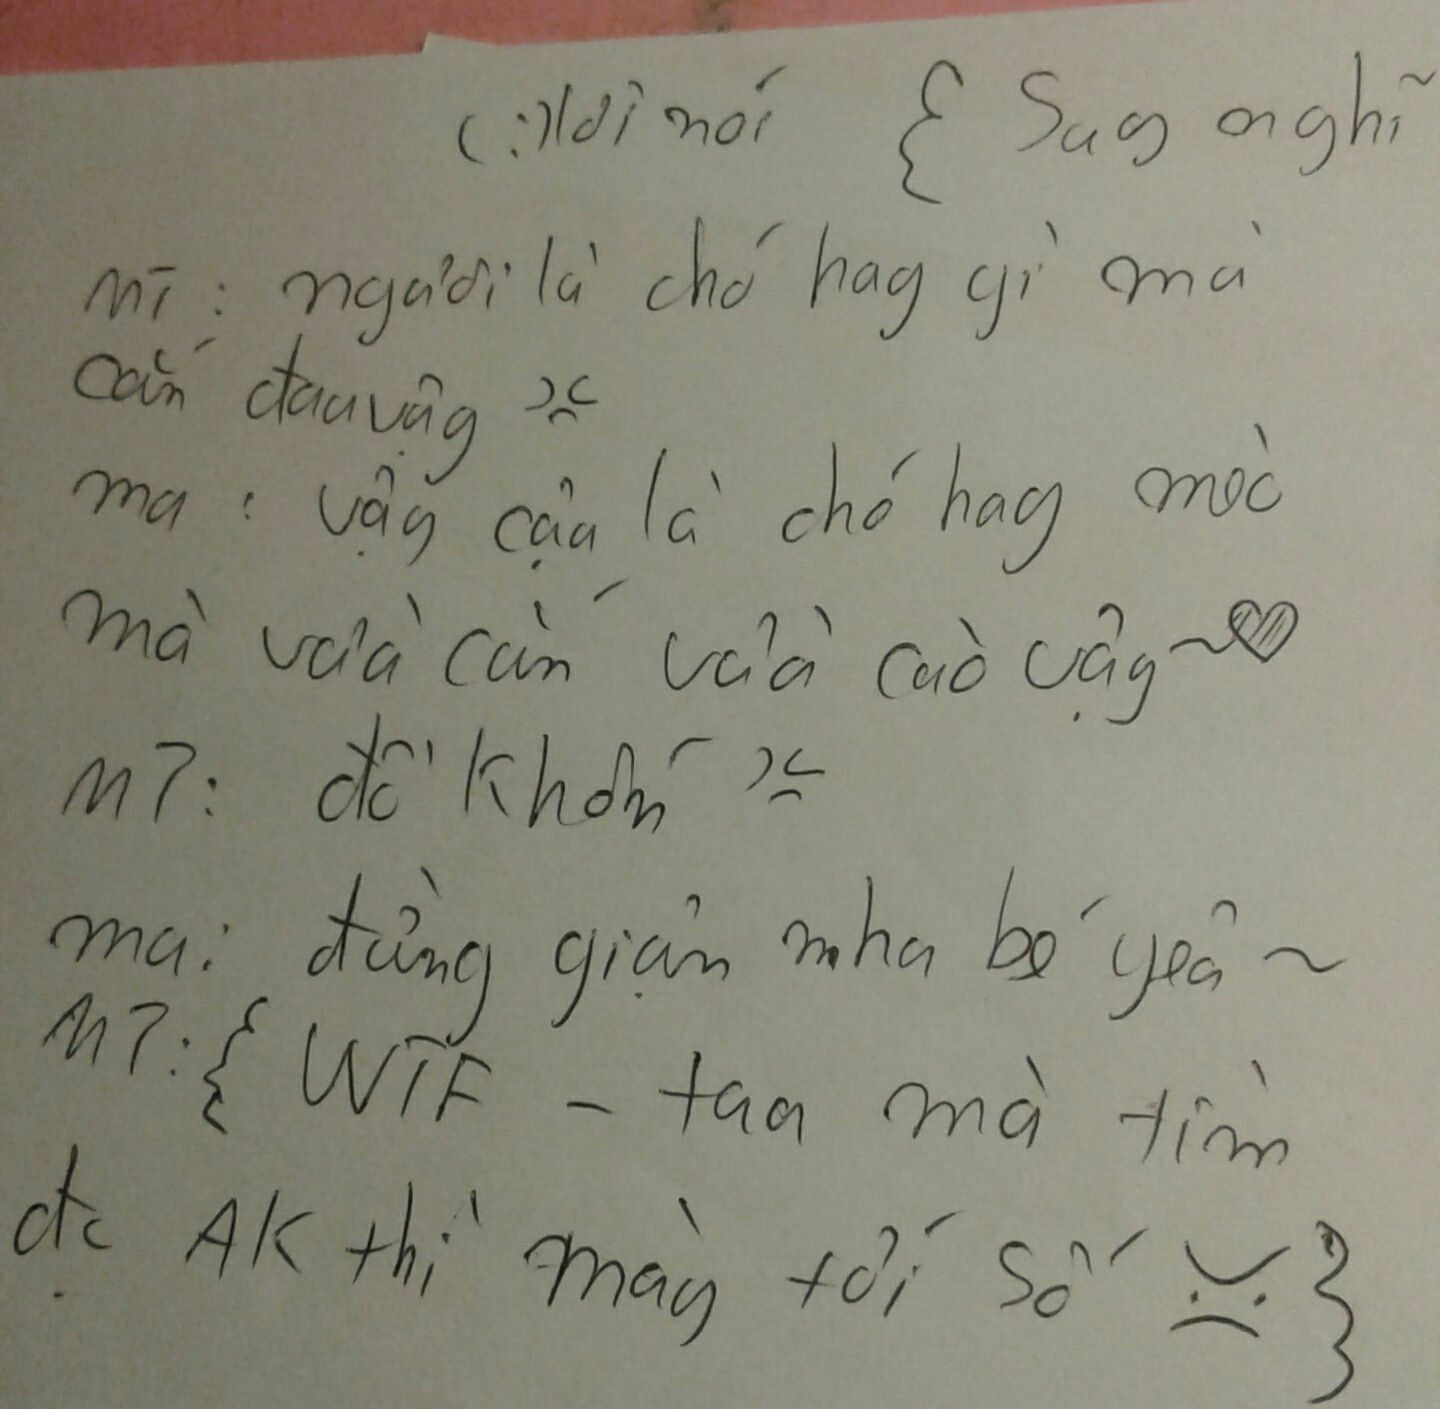 (:) lời nói { Suy nghĩ
MT: người là chó hay gì mà
cắn đau vậy
ma: vậy cậu là chó hay mèo
mà vừa cắn vừa cào vậy ~♡
MT: đồ khốn
ma: đừng giận nha bé yêu ~
MT: { WTF - tau mà tìm
đc AK thì mày tới số }